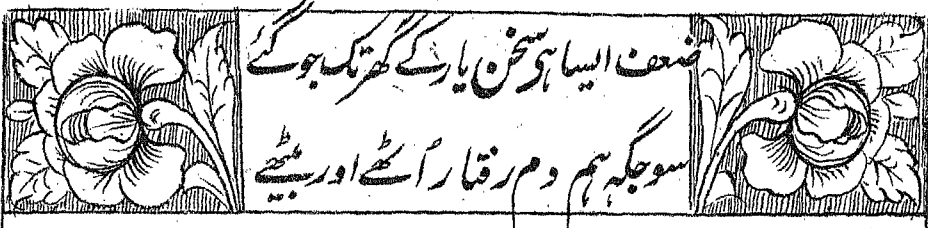 ضعف ایسا ہی سخن یار کے گھر تک جو گئے
سو جگہ ہم دم رفتار اُٹھے اور بیٹھے